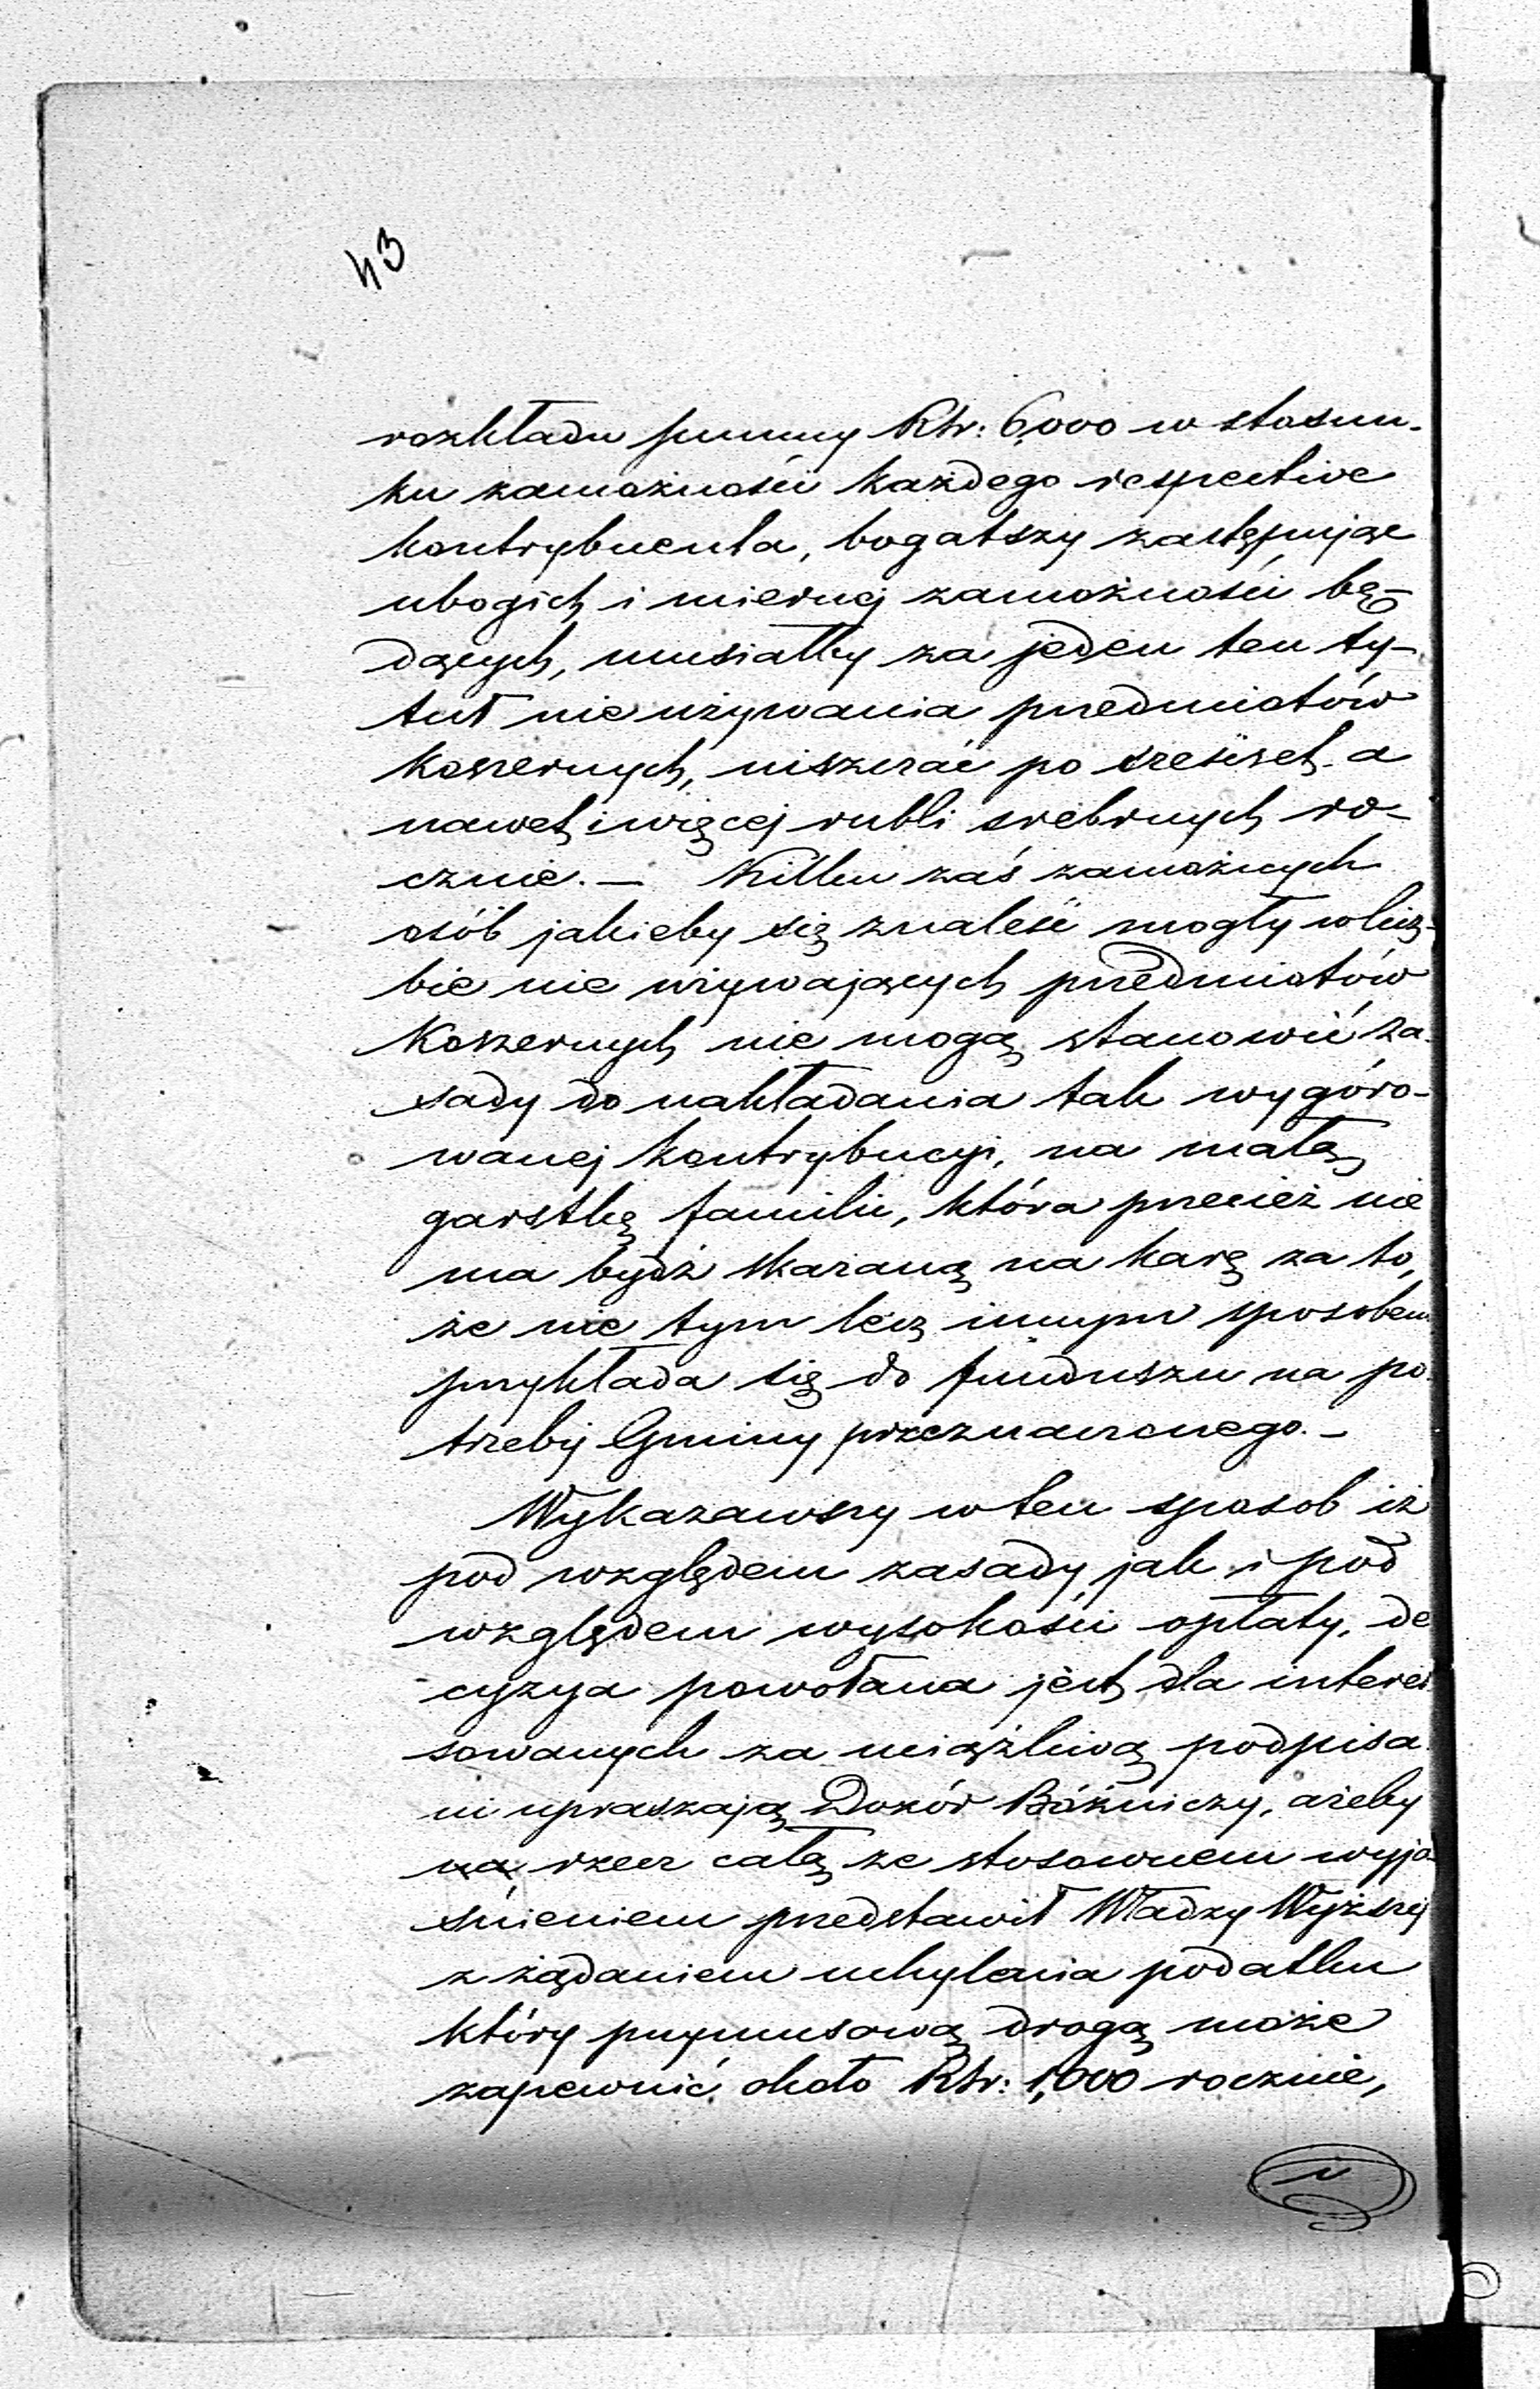 43
rozkładu summy Rbr: 6,000 w stosun-
ku zamożności każdego respective
kontrybuenta, bogatszy zastępując
ubogich i miernej zamożności bę-
dących, musiałby za jeden ten ty-
tuł nie używania przedmiotów
koszernych, uiszczać po sześćset a
nawet i więcej rubli srebrnych ro-
cznie. — Kilku zaś zamożnych
osób jakieby się znaleść mogły w licz-
bie nie używających przedmiotów
Koszernych nie mogą stanowić za-
sady do nakładania tak wygóro-
wanej kontrybucyi, na małą
garstkę familii, która przecież nie
ma bydź skazaną na karę za to,
że nie tym lecz innym sposobem
przykłada się do funduszu na po-
trzeby Gminy przeznaczonego. —
Wykazawszy w ten sposob iż
pod względem zasady jak i pod
względem wysokości opłaty, de
cyzya powołana jest dla intere
sowanych za uciążliwą podpisa
ni upraszają Dozór Bóżniczy, ażeby
na rzecz całą ze stosownem wyja-
śnieniem przedstawił Władzy Wyższej
z żądaniem uchylenia podatku
który przymusową drogą może
zapewnić około Rbr: 1,000 rocznie,
i